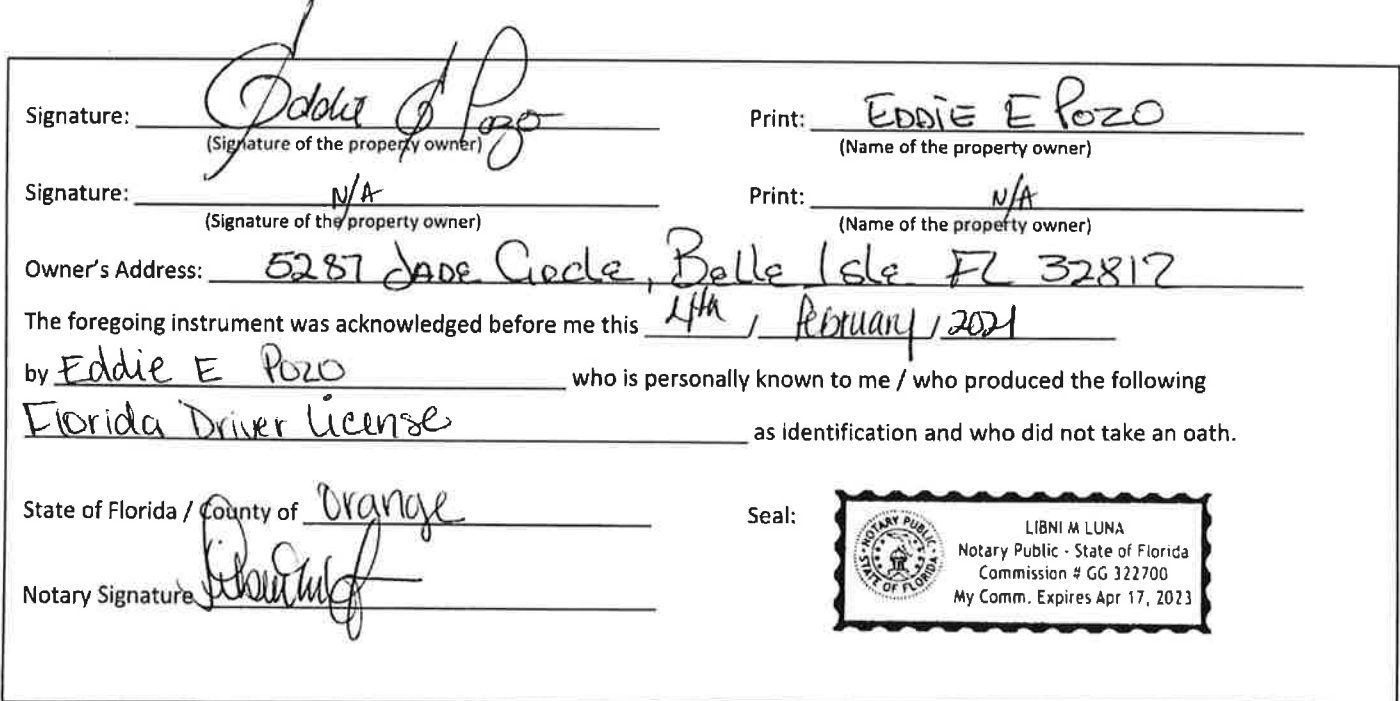 Signature: Eddie E Pozo Print: EDDIE E POZO
(Signature of the property owner) (Name of the property owner)
Signature: N/A Print: N/A
(Signature of the property owner) (Name of the property owner)
Owner's Address: 5287 JADE Circle, Belle Isle FL 32812
The foregoing instrument was acknowledged before me this 4th / February / 2021
by Eddie E Pozo who is personally known to me / who produced the following
Florida Driver License as identification and who did not take an oath.
State of Florida / County of Orange Seal:
NOTARY PUBLIC
STATE OF FLORIDA
LIBNI M LUNA
Notary Public - State of Florida
Commission # GG 322700
My Comm. Expires Apr 17, 2023
Notary Signature